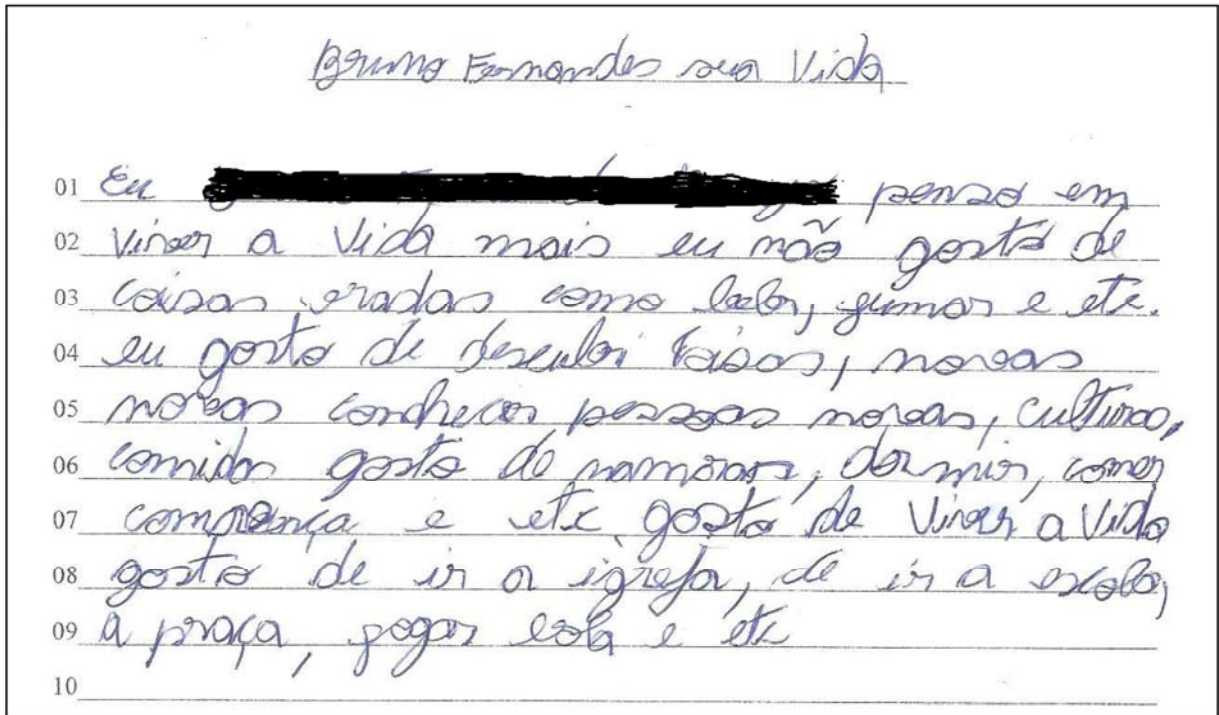 Bruno Fernandes sua Vida
01 Eu penso em
02 Viver a Vida mais eu não gosto de
03 coisas eradas como beber, fumar e etc.
04 eu gosto de descubri coisas, novas
05 novas conhecer pessoas novas, culturas,
06 comidas gosto de namorar, dormir, comer
07 e etc gosto de Viver a Vida
08 gosto de ir a igreja, de ir a escola,
09 a praça, jogar bola e etc
10